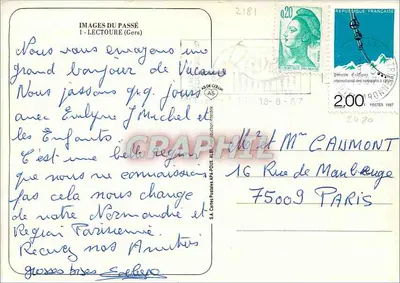 IMAGES DU PASSÉ
1 - LECTOURE (Gers)
Nous vous envoyons un
grand bonjour de Vacances
Nous passons qq. jours
avec Evelyne J Michel et
les Enfants.
C'est une belle région
que nous ne connaissions
pas cela nous change
de notre Normandie et
Région Parisienne.
Recevez nos Amitiés
grosses bises
2181
0,20
RÉPUBLIQUE FRANÇAISE
2,00
POSTES 1987
2480
18-8-87
CRAPHIL
S.A. Cartes Postales APA-POUX, ALBI
Mr et Mme CANMONT
16 Rue de Maubeuge
75009 PARIS